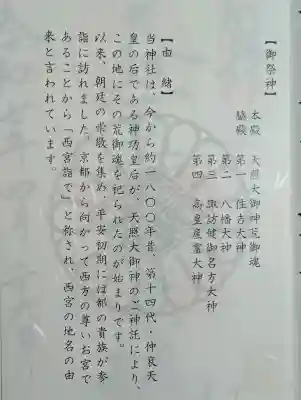 【御祭神】
本殿　天照大御神荒御魂
脇殿　第一　住吉大神
第二　八幡大神
第三　諏訪健御名方大神
第四　高皇産霊大神
【由緒】
当神社は、今から約一八〇〇年昔、第十四代・仲哀天
皇の后である神功皇后が、天照大御神のご神託により、
この地にその荒御魂を祀られたのが始まりです。
以来、朝廷の崇敬を集め、平安初期には都の貴族が参
詣に訪れました。京都から向かって西方の尊いお宮で
あることから「西宮詣で」と称され、西宮の地名の由
来と言われています。